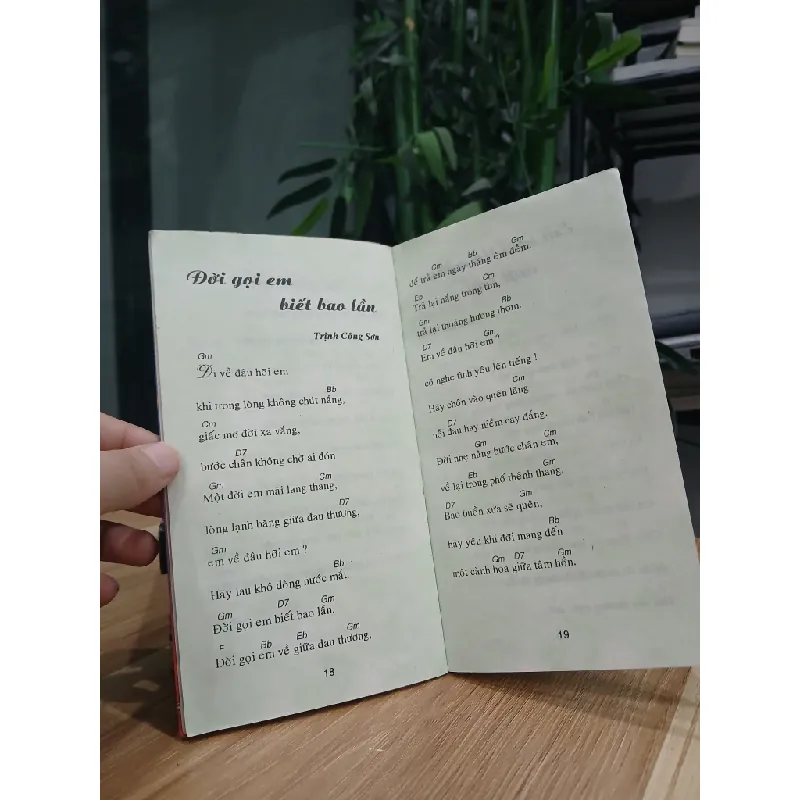 Đời gọi em
biết bao lần
Trịnh Công Sơn
Gm
Đi về đâu hỡi em
Bb
khi trong lòng không chút nắng,
Cm
giấc mơ đời xa vắng,
D7
bước chân không chờ ai đón
Gm Cm
Một đời em mãi lang thang,
D7
lòng lạnh băng giữa đau thương,
Gm
em về đâu hỡi em ?
Bb
Hãy lau khô dòng nước mắt,
Gm D7 Gm
Đời gọi em biết bao lần.
Bb Eb Gm
Đời gọi em về giữa đau thương,
18
Cm Bb Gm
để trả em ngày tháng êm đềm.
Eb Cm
Trả lại nắng trong tim,
Gm Bb
trả lại thoáng hương thơm.
D7 Gm
Em về đâu hỡi em ?
có nghe tình yêu lên tiếng !
Cm
Hãy chôn vào quên lãng
D7
nỗi đau hay niềm cay đắng.
Gm Cm
Đời nhẹ nâng bước chân em,
Eb Cm
về lại trong phố thênh thang.
D7 Gm
Bao buồn xưa sẽ quên.
Bb
Hãy yêu khi đời mang đến
Gm D7 Gm
một cành hoa giữa tâm hồn.
19